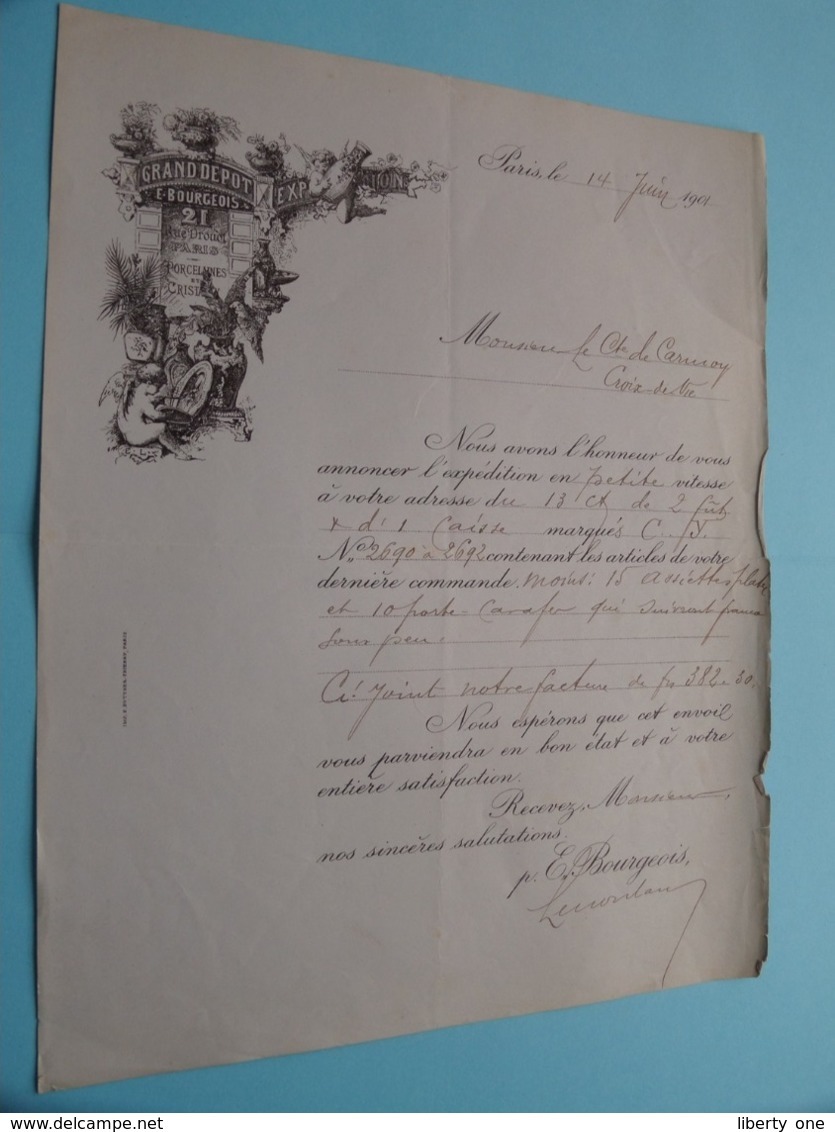 GRAND DEPOT
E. BOURGEOIS
21
Rue Drouot
PARIS
PORCELAINES
ET
CRISTAUX
EXPOSITION
Paris, le 14 Juin 1901
Monsieur Le Cte de Carmoy
Croix de Vie
Nous avons l'honneur de vous
annoncer l'expédition en petite vitesse
à votre adresse du 13 ct de 2 fûts
& d'1 Caisse marqués C. J.
Nos 2690 à 2692 contenant les articles de votre
dernière commande. moins: 15 assiettes plates
et 10 porte-carafes qui suivront franco
sous peu.
Ci-Joint notre facture de frs 382.30.
Nous espérons que cet envoi
vous parviendra en bon état et à votre
entière satisfaction.
Recevez, Monsieur,
nos sincères salutations.
p. E. Bourgeois,
delcampe.net
liberty one